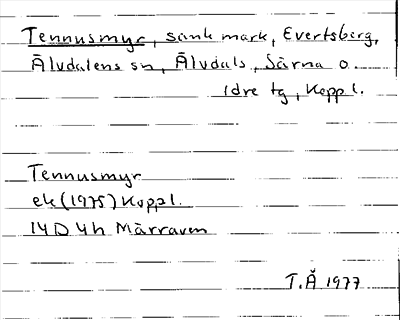 Tennusmyr, sank mark, Evertsberg,
Älvdalens sn, Älvdals, Särna o
Idre tg, Koppl.
Tennusmyr
ek (1975) Koppl.
14D 4h Märraven
T.Å 1977